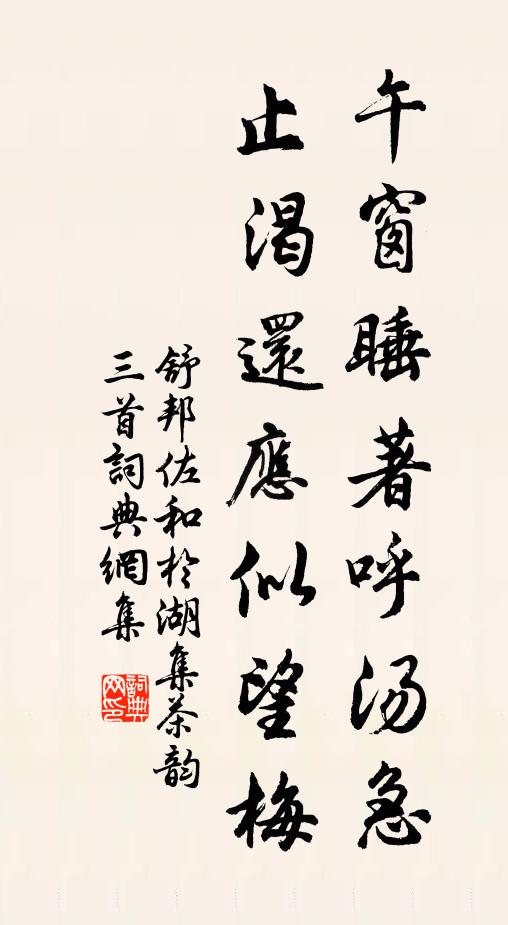 午窗睡著呼汤急
止渴還應似望梅
舒邦佐和於湖集茶韵
三首詞典網集
詞典网印